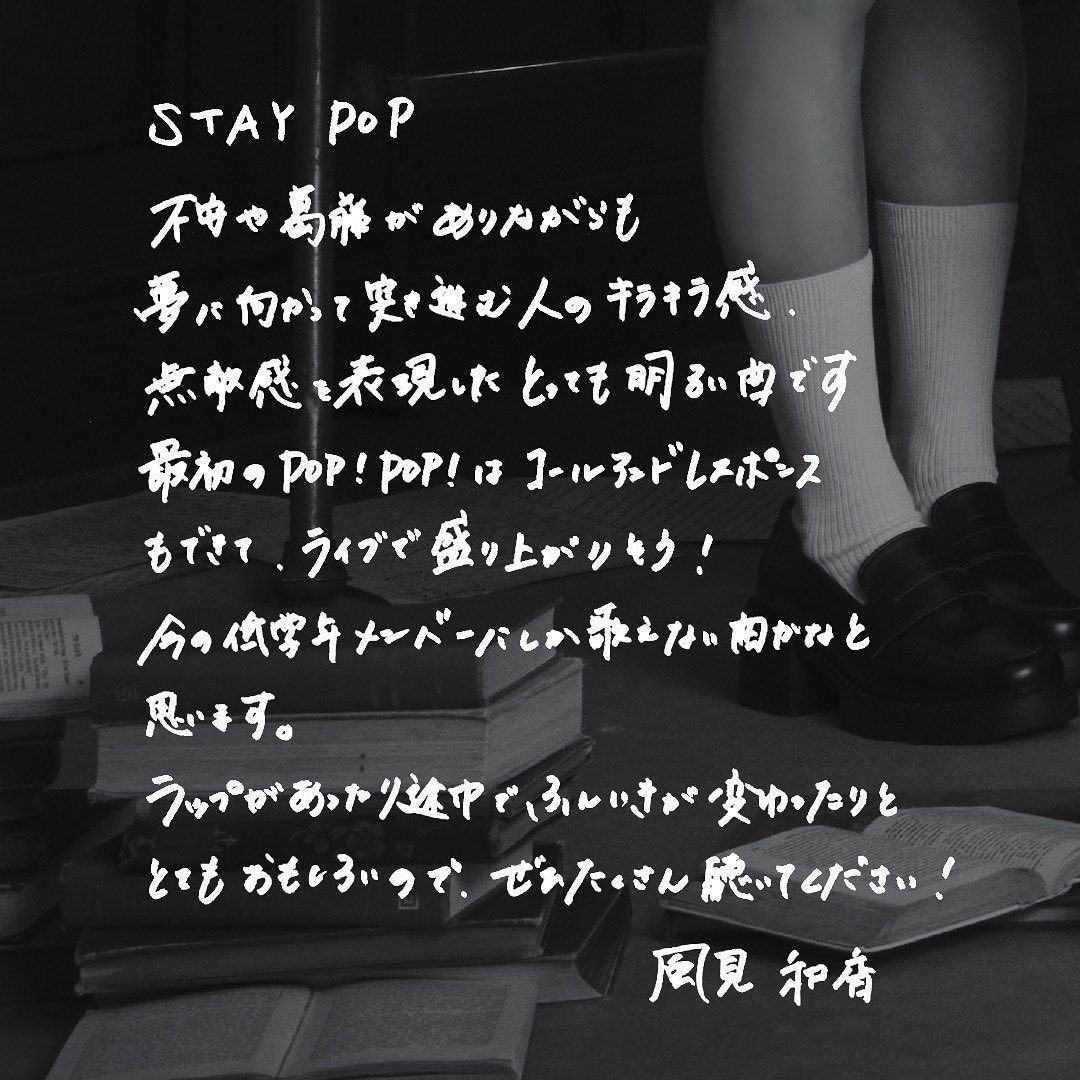 STAY POP
不安や葛藤がありながらも
夢に向かって突き進む人のキラキラ感、
無敵感を表現したとっても明るい曲です
最初のPOP!POP!はコールアンドレスポンス
もできて、ライブで盛り上がりそう!
今の低学年メンバーにしか歌えない曲かなと
思います。
ラップがあったり途中で、ふんいきが変わったりと
とてもおもしろいので、ぜひたくさん聴いてください!
風見 和香